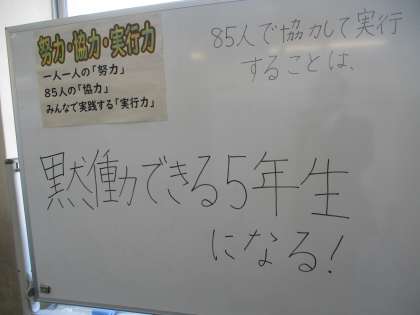 努力・協力・実行力
一人一人の「努力」
85人の「協力」
みんなで実践する「実行力」
85人で協力して実行
することは、
黙働できる5年生
になる!